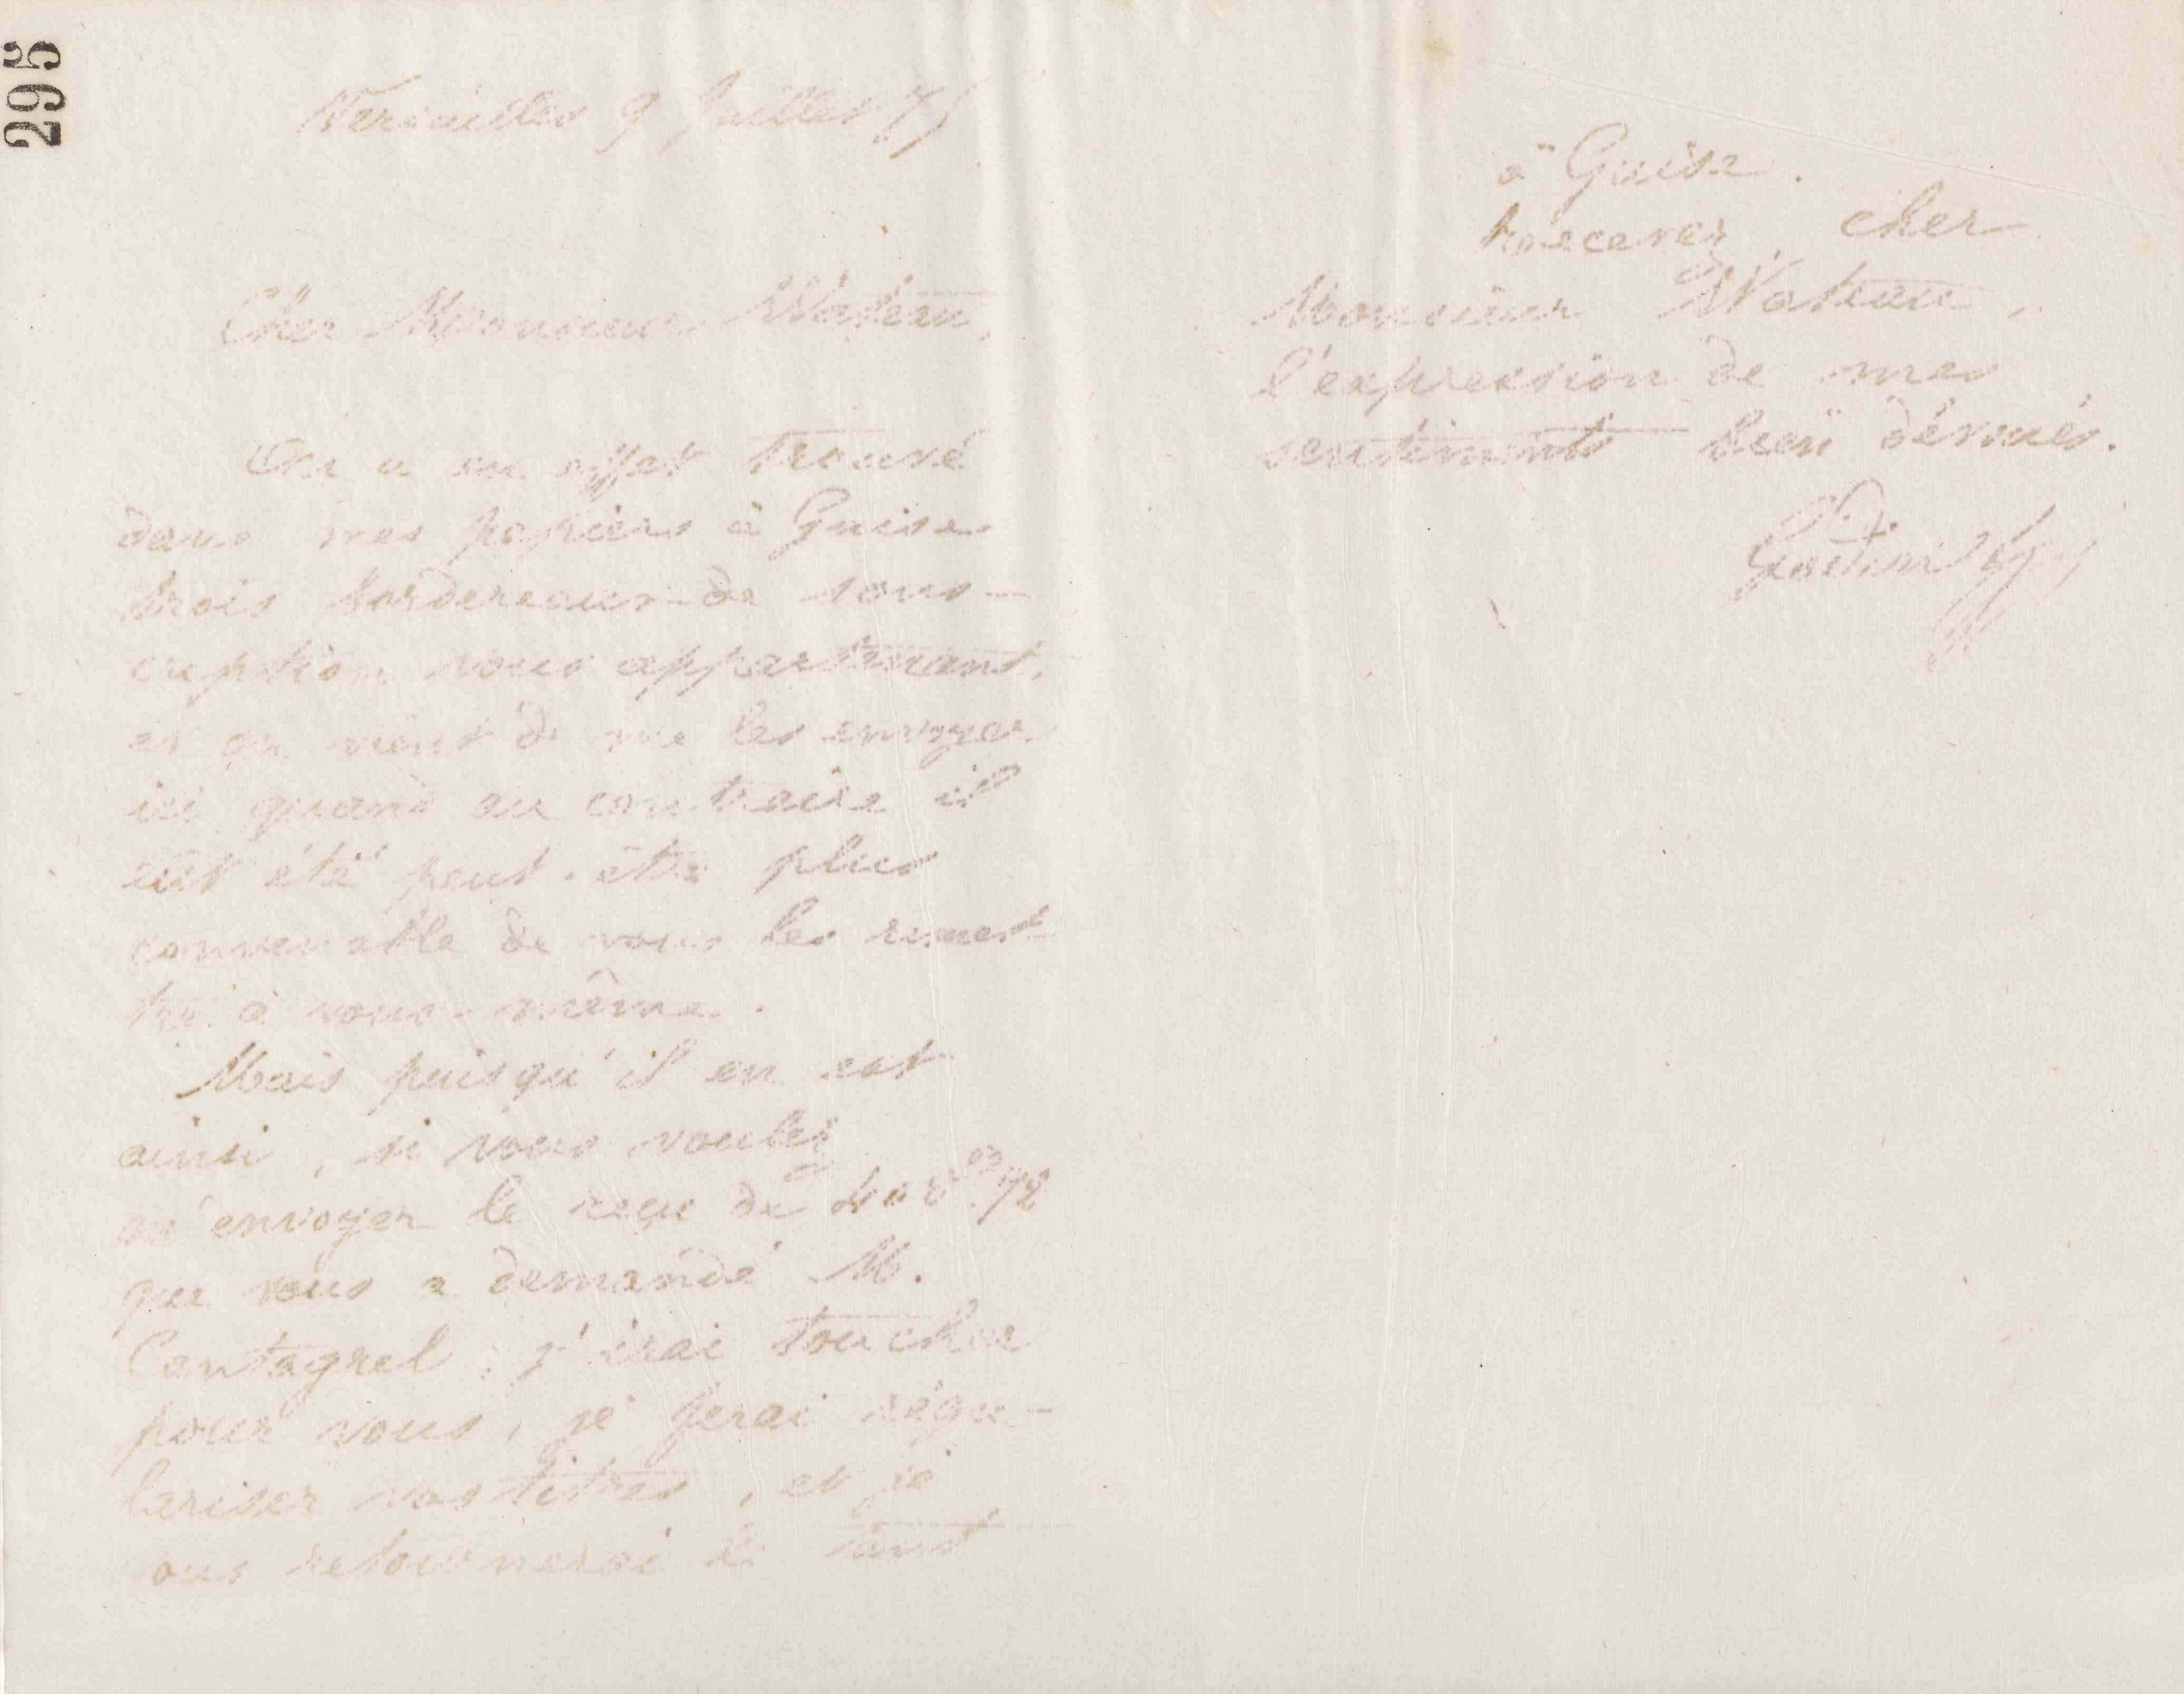 295
Versailles 9 Juillet 75
Cher Monsieur Wateau,
On a en effet trouvé
dans mes papiers à Guise
trois bordereaux de sous-
cription vous appartenant,
et on vient de me les envoyer
ici quand au contraire il
eut été peut-être plus
convenable de vous les remet
tre à vous-même.
Mais puisqu'il en est
ainsi, si vous voulez
m'envoyer le reçu de
que vous a demandé M.
Cantagrel, j'irai toucher
pour vous, je ferai régu-
lariser vos titres, et je
vous retournerai le tout
à Guise.
Recevez, cher
Monsieur Wateau,
l'expression de mes
sentiments bien dévoués.
Godin